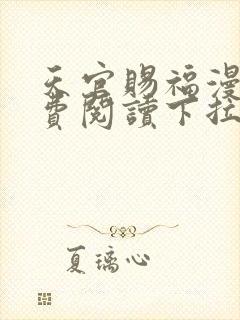 天官賜福漫
費閱讀下拉
夏璃心